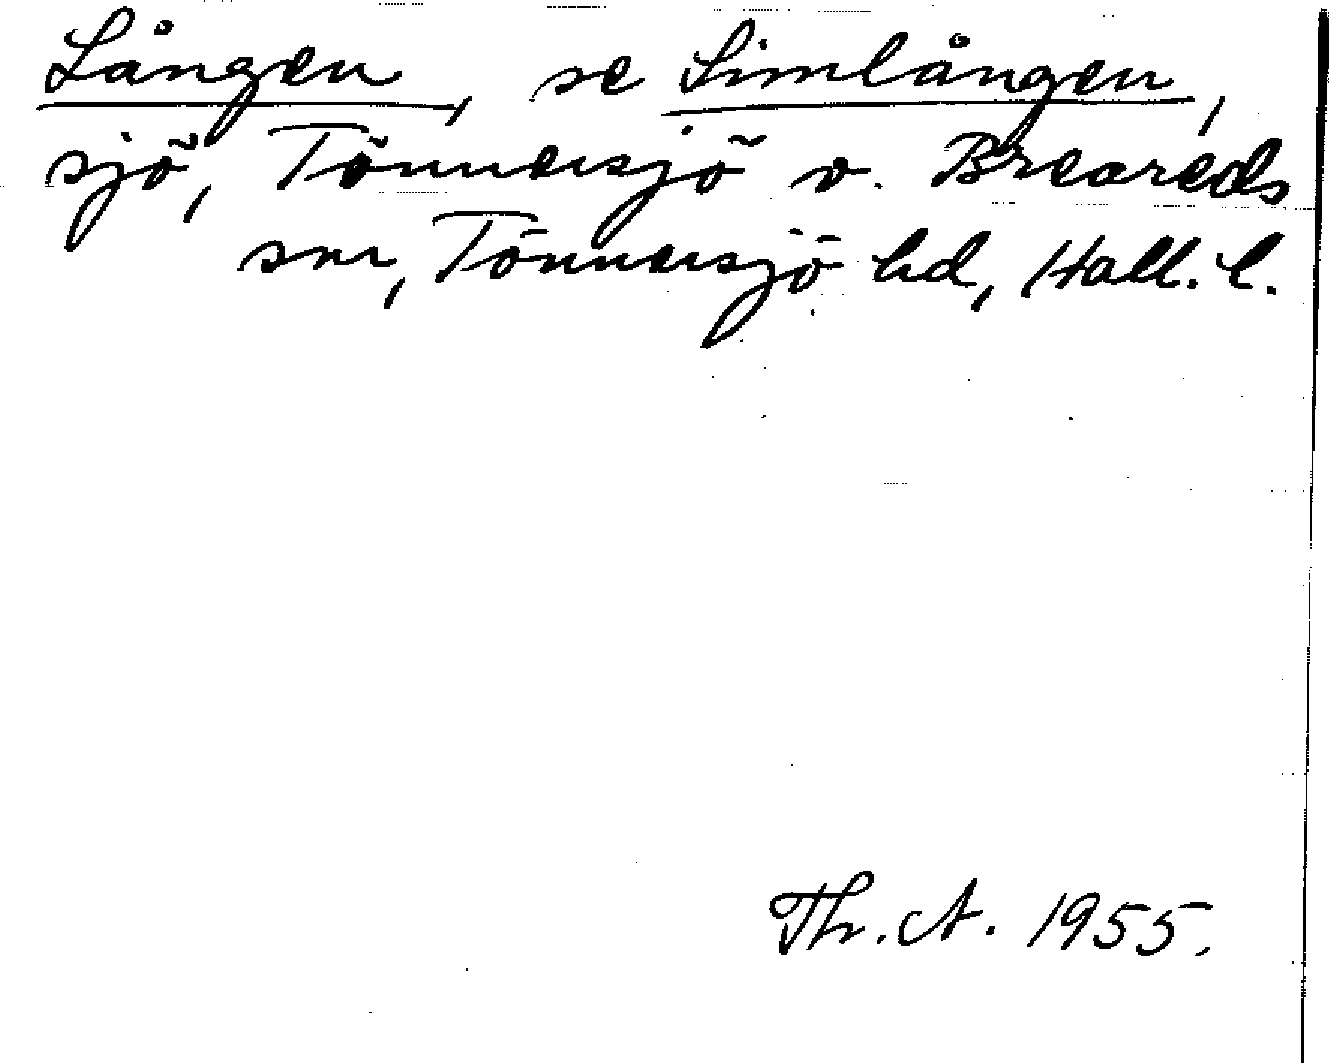 Lången, se Simlången,
sjö, Tönnersjö o. Breareds
snr, Tönnersjö hd, Hall. l.
Th. A. 1955.